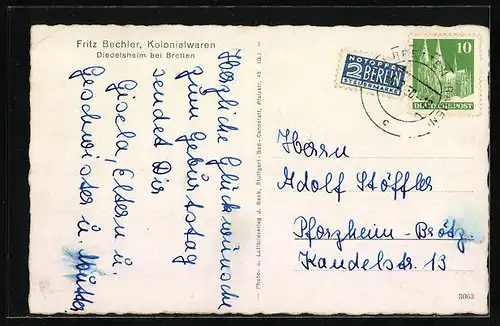 Fritz Bechler, Kolonialwaren
Diedelsheim bei Bretten
Herzliche Glückwünsche
zum Geburtstag
sendet Dir
Gisela, Eltern u.
Geschwister u.
Photo- u. Luftbildverlag J. Beck, Stuttgart-Bad-Cannstatt, Pfalzstr. 45
NOTOPFER
2 BERLIN
STEUERMARKE
10
DEUTSCHE POST
BRETTEN
c
Herrn
Adolf Stöffler
Pforzheim-Brötz.
Kandelstr. 13
3063